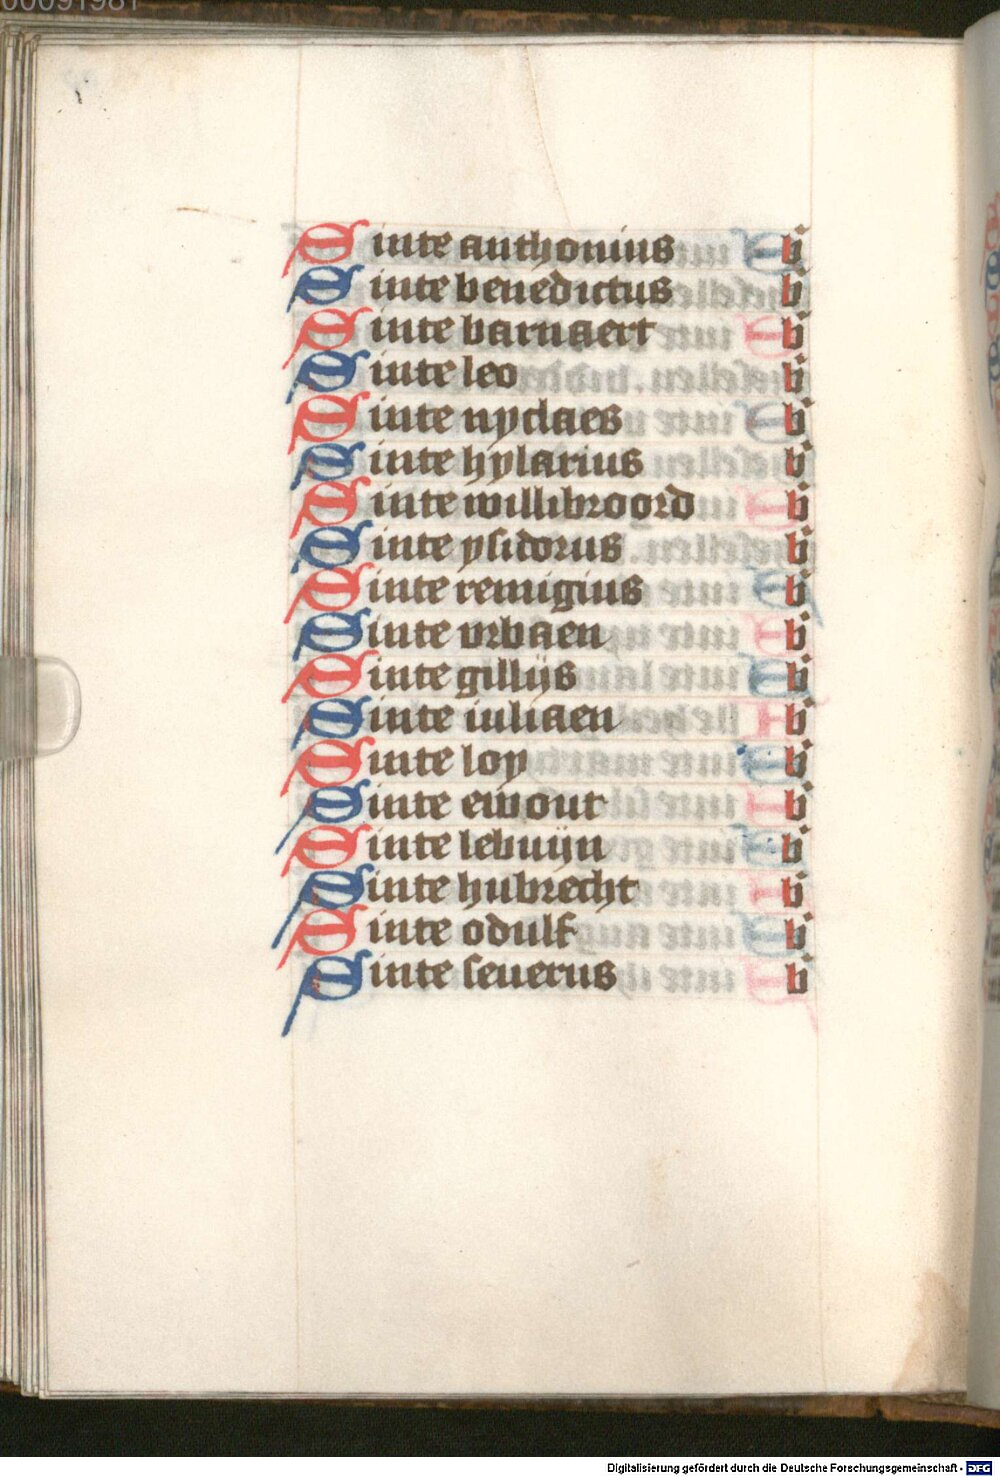 00091981
Sinte anthonius b
Sinte benedictus b
Sinte barnaert b
Sinte leo b
Sinte nyclaes b
Sinte hylarius b
Sinte willibroord b
Sinte ysidorus b
Sinte remigius b
Sinte vrbaen b
Sinte gillijs b
Sinte iuliaen b
Sinte loy b
Sinte ewout b
Sinte lebuijn b
Sinte hubrecht b
Sinte odulf b
Sinte seuerus b
Digitalisierung gefördert durch die Deutsche Forschungsgemeinschaft - DFG